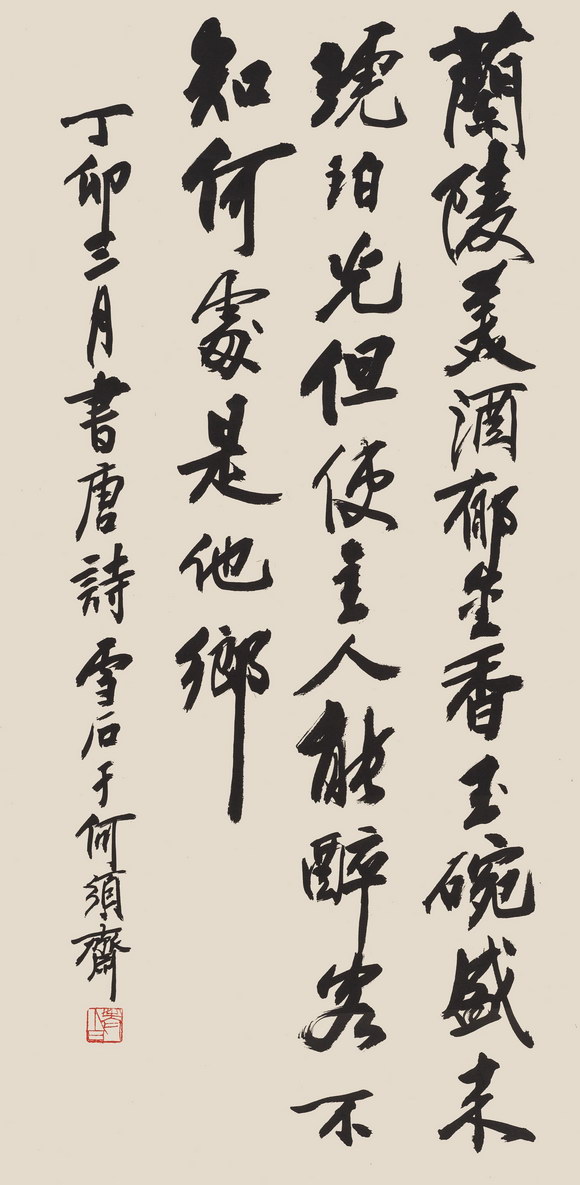 蘭陵美酒郁金香玉碗盛来
琥珀光但使主人能醉客不
知何處是他鄉
丁卯三月書唐詩雪石于何須齋